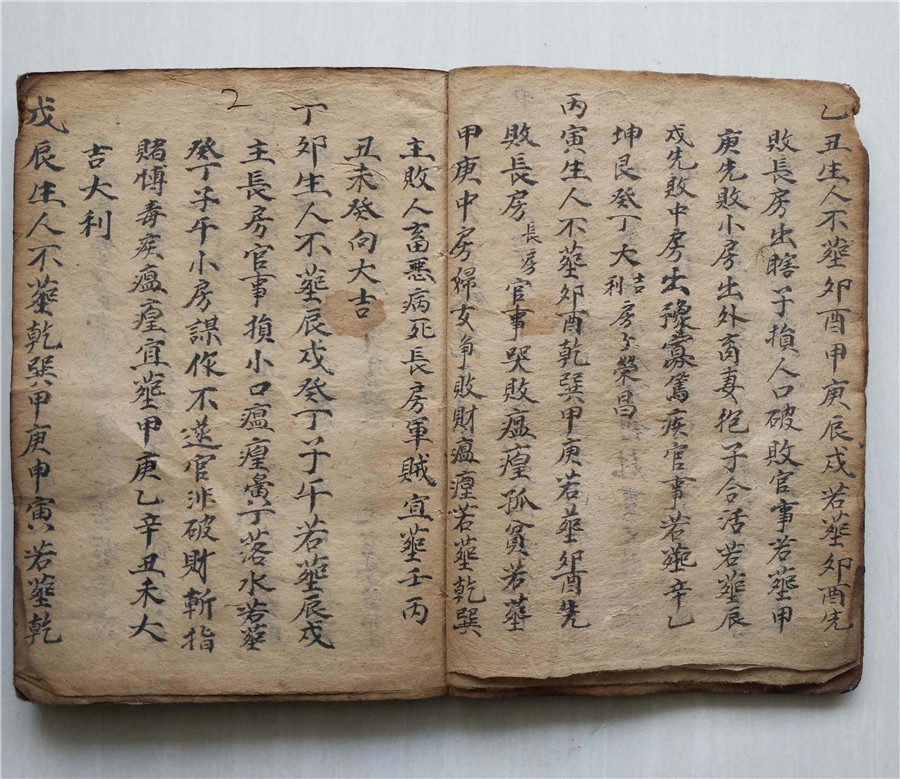 乙丑生人不葬卯酉甲庚辰戌若葬卯酉先
敗長房出瞎子損人口破敗官事若葬甲
庚先敗小房出外裔妻抱子合活若葬辰
戌先敗中房出孤寡篤疾官事若葬辛乙
坤艮癸丁大吉利房房榮昌
丙寅生人不葬卯酉乾巽甲庚若葬卯酉先
敗長房長房官事哭敗瘟瘟孤貧若葬
甲庚中房婦女争敗財瘟瘟若葬乾巽
主敗人畜悪病死長房軍賊宜葬壬丙
丑未癸向大吉
2
丁卯生人不葬辰戌癸丁子午若葬辰戌
主長房官事損小口瘟瘟丁落水若葬
癸丁子午小房謀你不遂官非破財斬指
賭博毒疾瘟瘟宜葬甲庚乙辛丑未大
吉大利
戊辰生人不葬乾巽甲庚申寅若葬乾